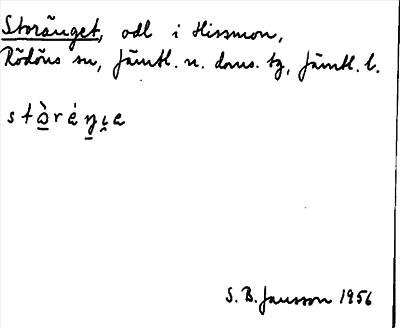 Storänget, odl i Hissmon,
Rödöns sn, Jämtl. n. doms. tg, Jämtl. l.
stɔ̀ŕeŋɩe
S. B. Jansson 1956